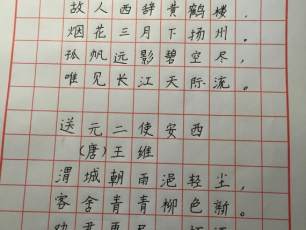 故人西辞黄鹤楼，
烟花三月下扬州。
孤帆远影碧空尽，
唯见长江天际流。
送元二使安西
(唐)王维
渭城朝雨浥轻尘，
家舍青青柳色新。
劝君更